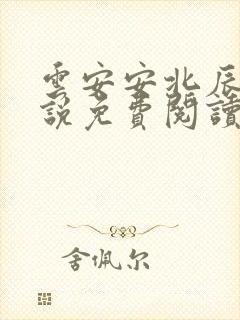 雲安安北辰
說免費閱讀
舍佩尔